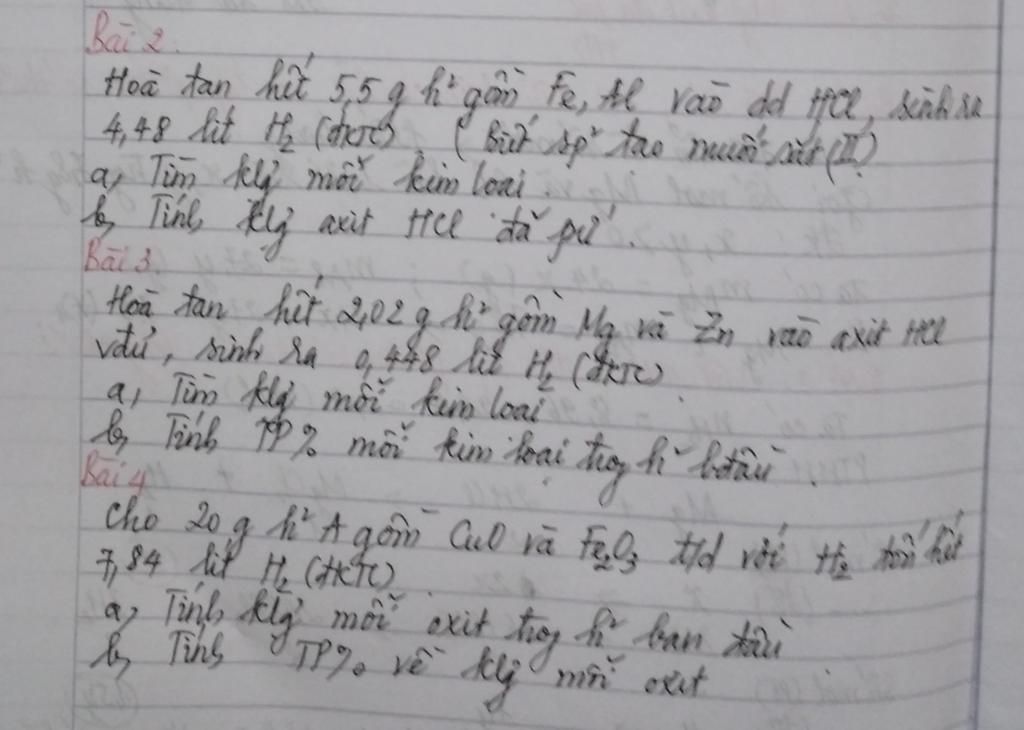 Bài 2.
Hoà tan hết 5,5 g h² gồm Fe, Al vào dd HCl, sinh ra
4,48 lít H₂ (đktc). (Biết sp² tạo muối sắt (II)
a, Tìm klg mỗi kim loại
b, Tính klg axit HCl đã pứ.
Bài 3.
Hoà tan hết 2,02 g h² gồm Mg và Zn vào axit HCl
vđủ, sinh ra 0,448 lít H₂ (đktc)
a, Tìm klg mỗi kim loại
b, Tính TP% mỗi kim loại trog h² bđầu.
Bài 4
Cho 20 g h² A gồm CuO và Fe₂O₃ t/d với H₂ tốn hết
7,84 lít H₂ (đktc)
a, Tính klg mỗi oxit trog h² ban đầu
b, Tính TP% về klg mỗi oxit